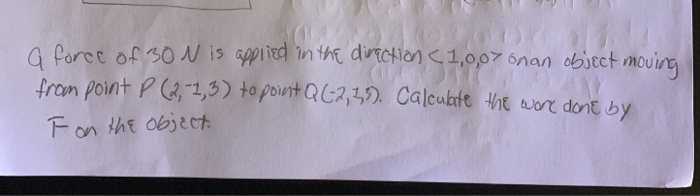 A force of 30 N is applied in the direction <1,0,0> on an object moving
from point P (2,-1,3) to point Q (-2,1,5). Calculate the work done by
F on the object.